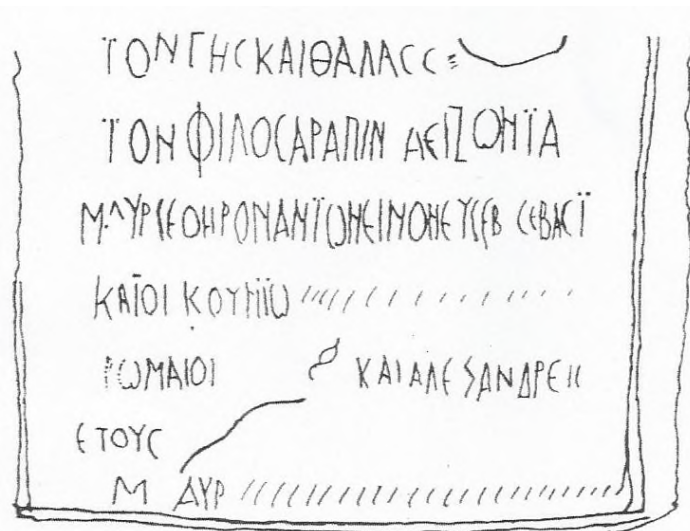 ΤΟΝ ΓΗC ΚΑΙ ΘΑΛΑCC
ΤΟΝ ΦΙΛΟCΑΡΑΠΙΝ ΑΕΙΖΩΗΤΑ
Μ ΑΥΡ CΕΟΗΡΟΝ ΑΝΤΩΝΕΙΝΟΝ ΕΥCΕΒ CΕΒΑCΤ
ΚΑΤΟΙΚΟΥΝΤΩ
ΡΩΜΑΙΟΙ ΚΑΙ ΑΛΕ ΑΝΔΡΕΙ
ΕΤΟΥC
Μ ΑΥΡ